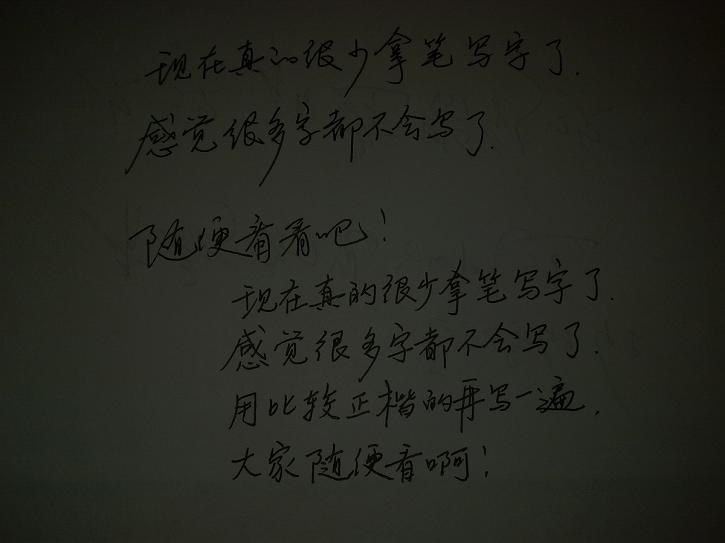 现在真的很少拿笔写字了.
感觉很多字都不会写了.
随便看看吧!
现在真的很少拿笔写字了.
感觉很多字都不会写了.
用比较正楷的再写一遍.
大家随便看啊!